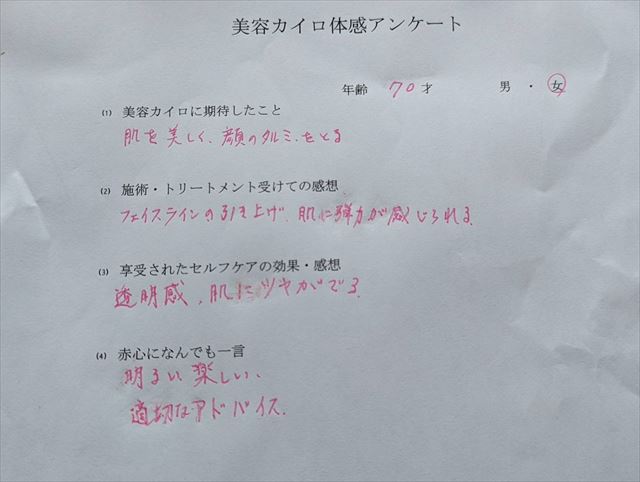 美容カイロ体感アンケート
年齢 70才 男・女
(1) 美容カイロに期待したこと
肌を美しく、顔のタルミをとる
(2) 施術・トリートメント受けての感想
フェイスラインの引き上げ、肌に弾力が感じられる
(3) 享受されたセルフケアの効果・感想
透明感、肌にツヤがでる
(4) 赤心になんでも一言
明るい楽しい、
適切なアドバイス.